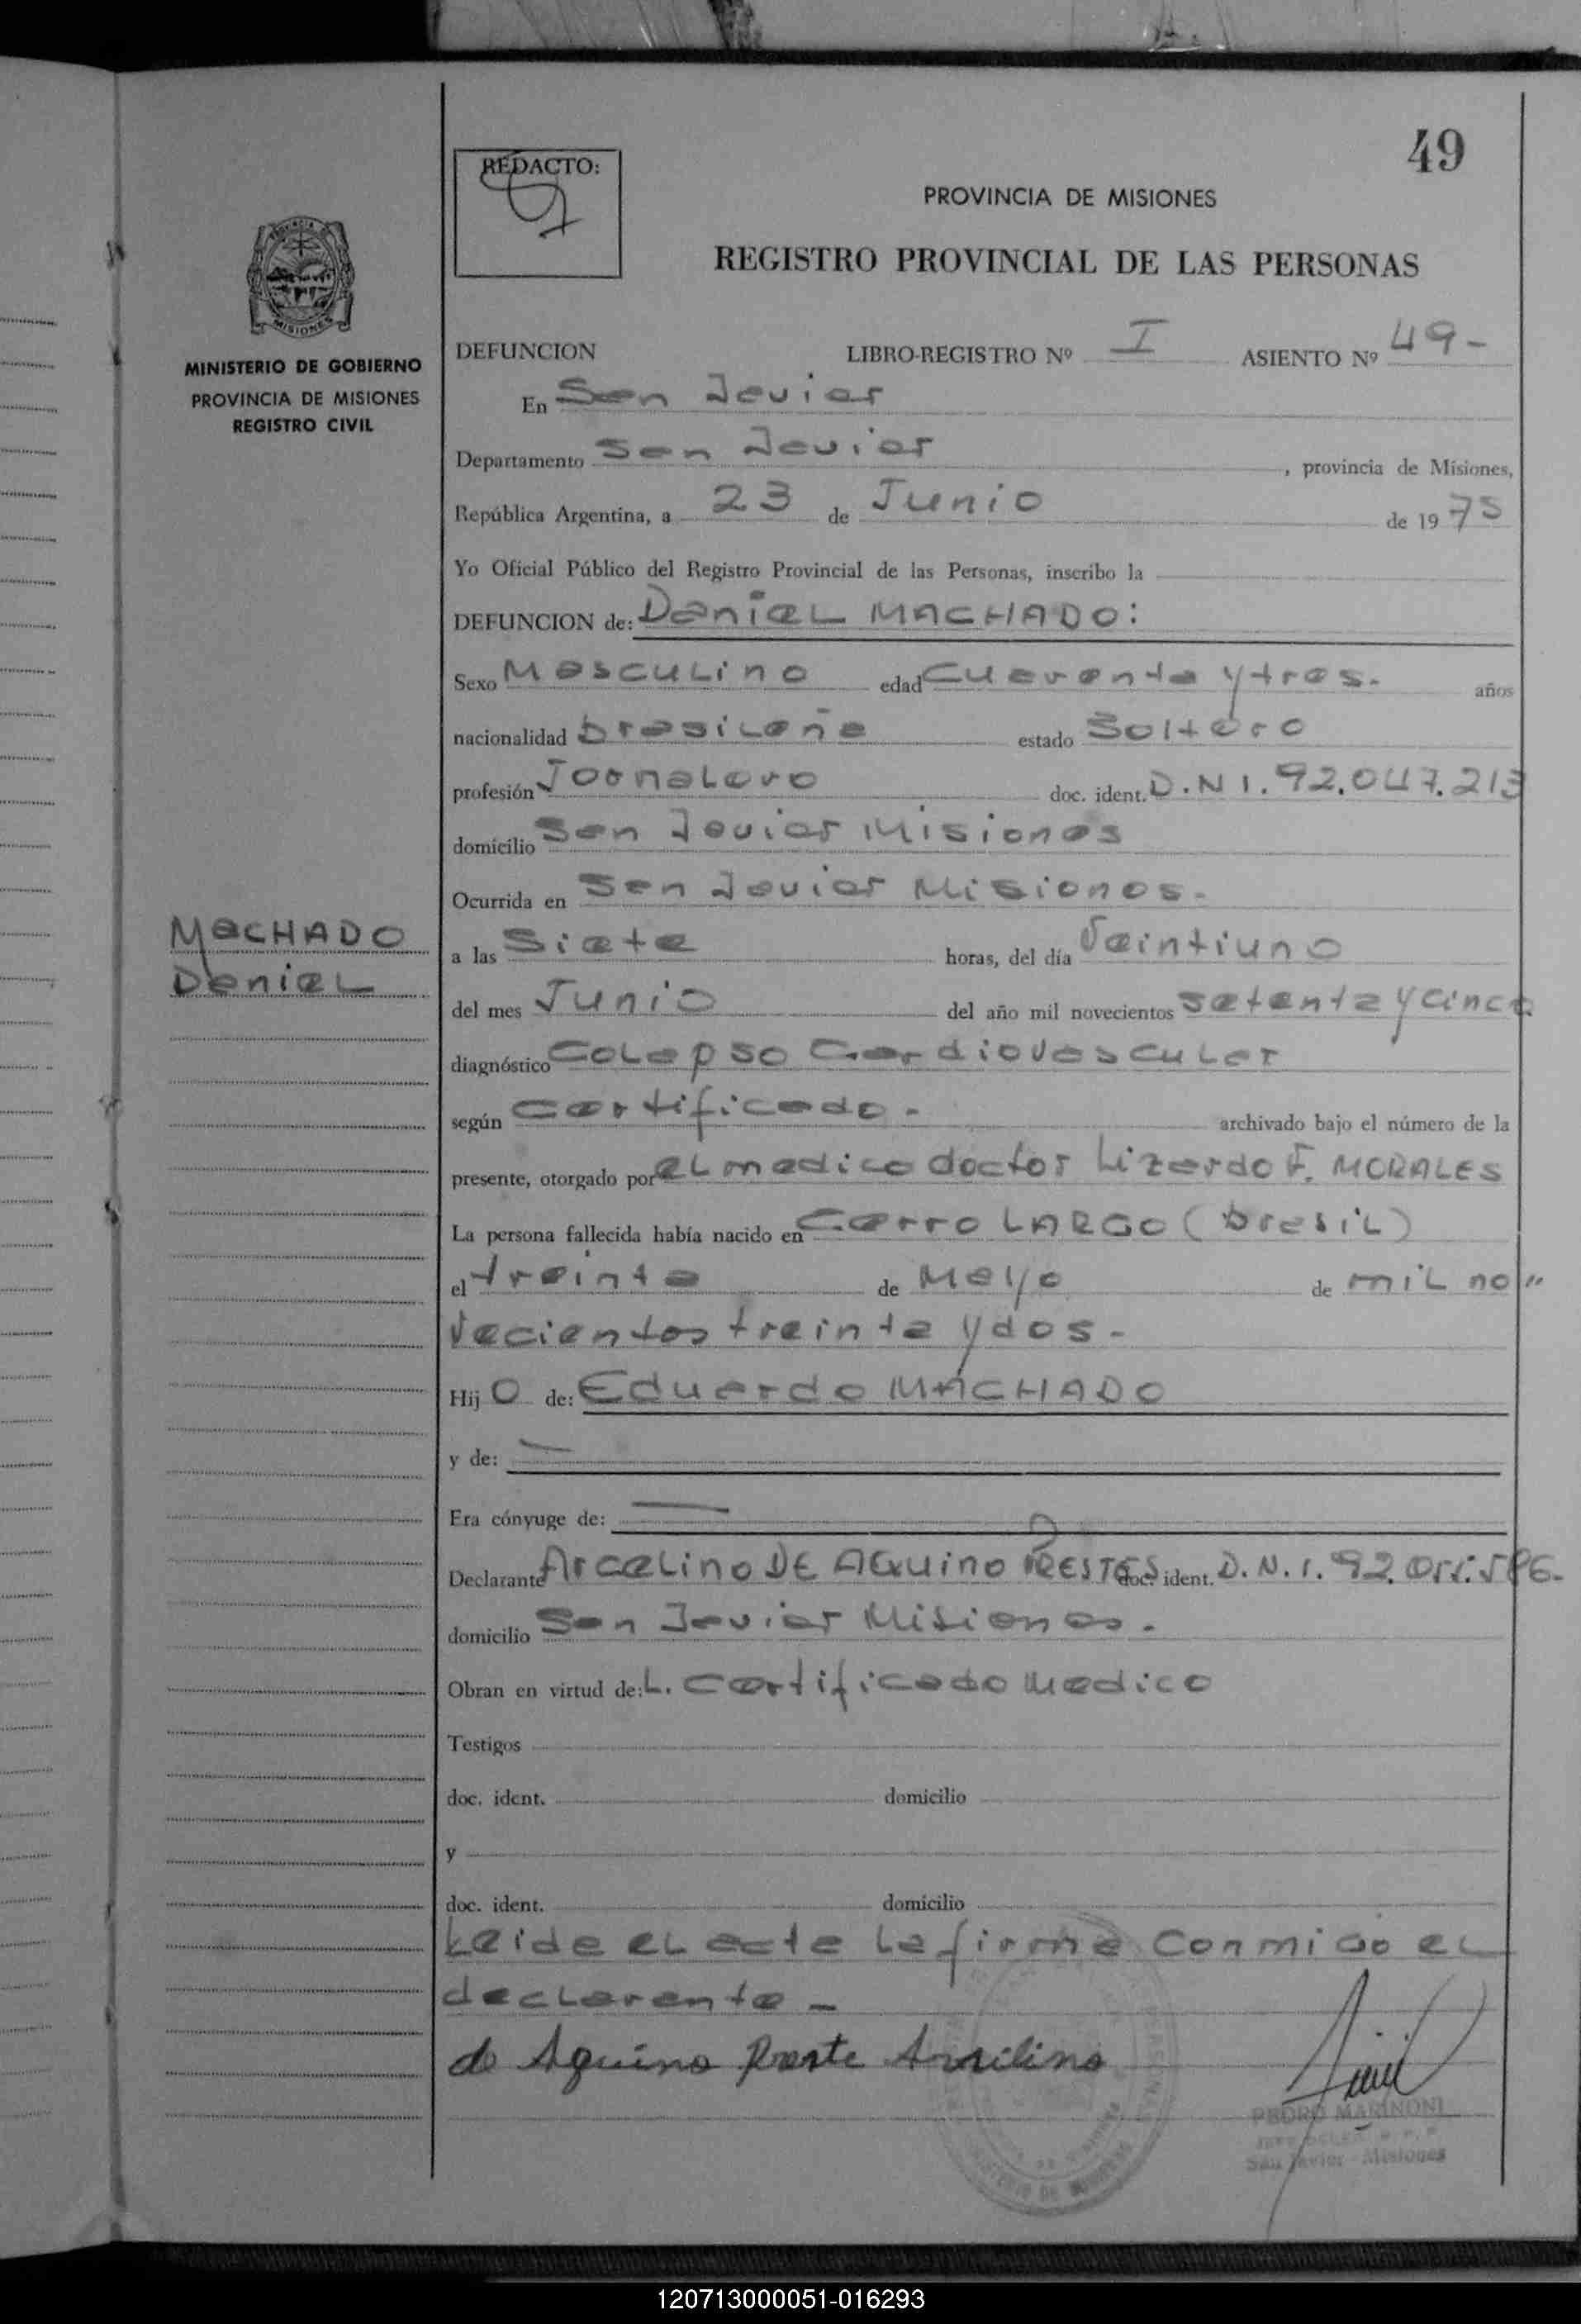 49
REDACTO:
PROVINCIA DE MISIONES
REGISTRO PROVINCIAL DE LAS PERSONAS
MISIONES
MINISTERIO DE GOBIERNO
PROVINCIA DE MISIONES
REGISTRO CIVIL
DEFUNCION LIBRO-REGISTRO Nº I ASIENTO Nº 49-
En San Javier
Departamento San Javier , provincia de Misiones,
República Argentina, a 23 de Junio de 1975
Yo Oficial Público del Registro Provincial de las Personas, inscribo la
DEFUNCION de: Daniel MACHADO:
Sexo Masculino edad Cuarenta y tres. años
nacionalidad brasileña estado Soltero
profesión Jornalero doc. ident. D.N I. 92.047.213
domicilio San Javier Misiones
Ocurrida en San Javier Misiones.
MACHADO
Daniel
a las Siete horas, del día Veintiuno
del mes Junio del año mil novecientos setenta y cinco
diagnóstico Colapso Cardiovascular
según Certificado. archivado bajo el número de la
presente, otorgado por el medico doctor Lizardo F. MORALES
La persona fallecida había nacido en Cerro LARGO (brasil)
el treinta de Mayo de mil no"
vecientos treinta y dos.
Hij O de: Eduardo MACHADO
y de: —
Era cónyuge de: —
Declarante Arcelino DE AQUINO PRESTES doc. ident. D.N.I. 92.
domicilio San Javier Misiones.
Obran en virtud de: L. Certificado Medico
Testigos
doc. ident. domicilio
y
doc. ident. domicilio
Leida el acta la firma conmigo el
declarante -
de Aquino Preste
PEDRO MARINONI
San Javier - Misiones
120713000051-016293